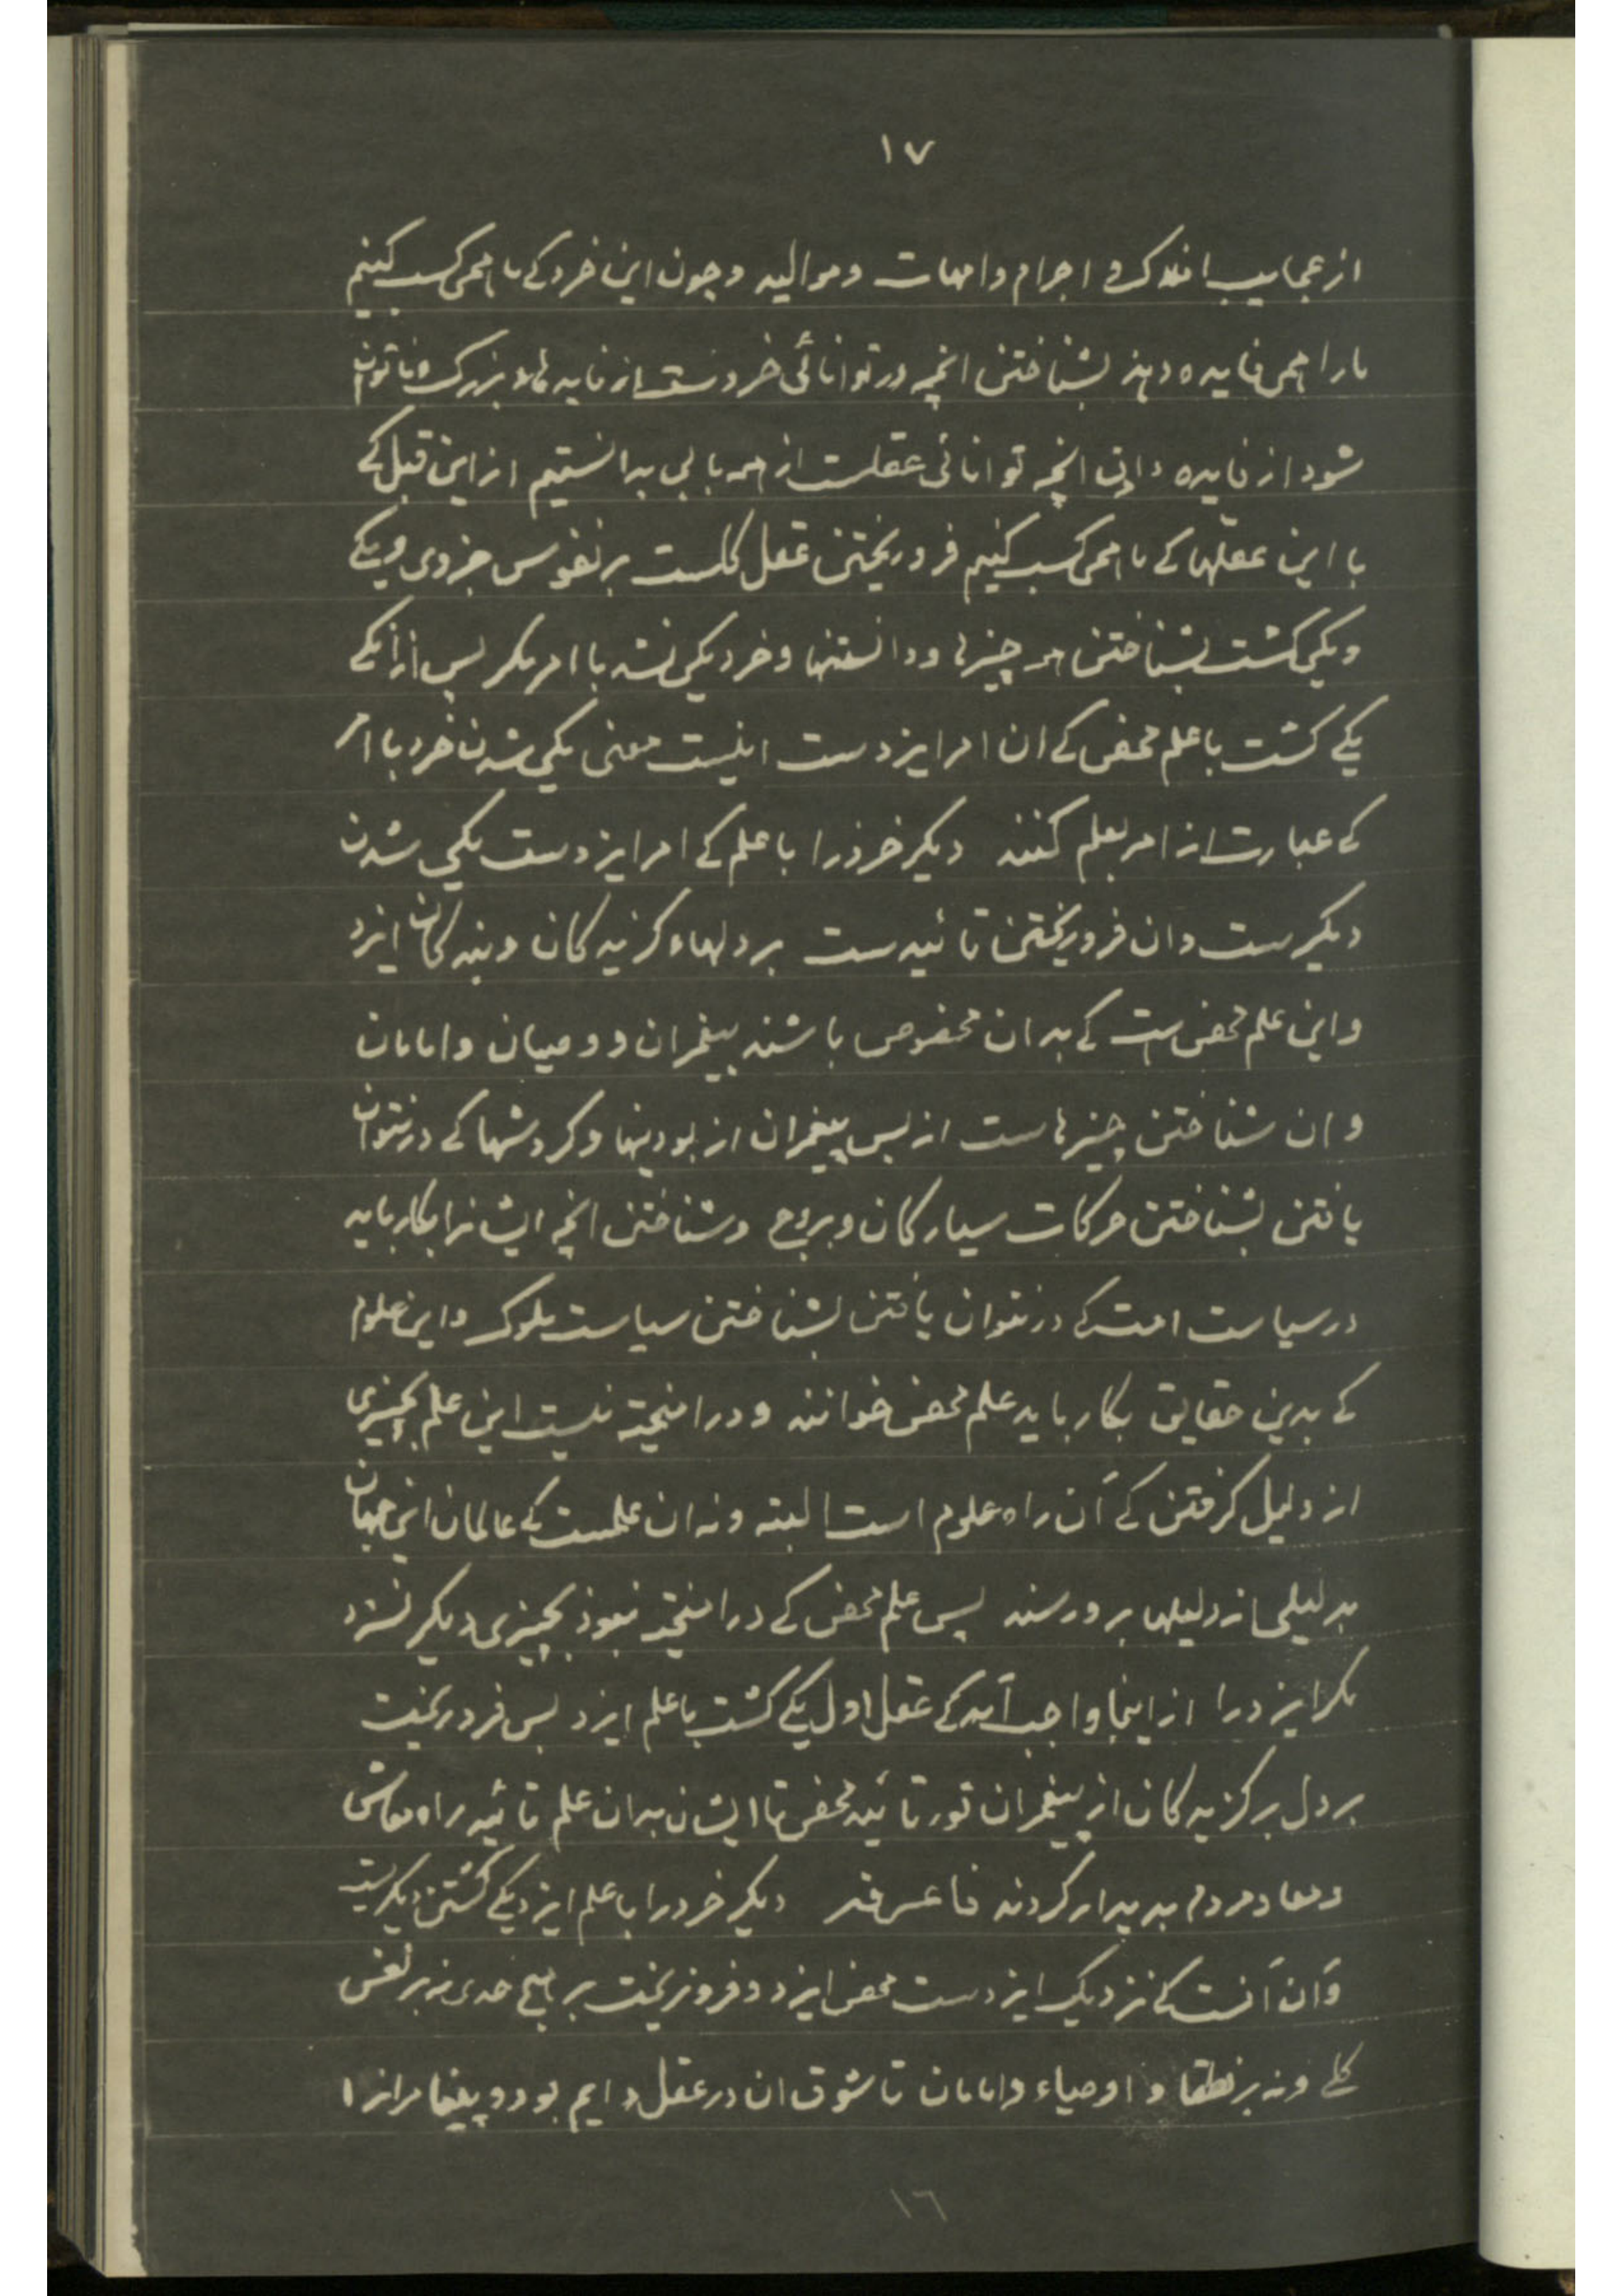 ١٧
از عجایب افلاک و اجرام و امهات و موالید و چون این خرد کے ما همی کسب کنیم
مارا همی فایده دهد بشناختن انچه در توانائی خردست از فایدهٔاء بزرک و ناتوان
شود از فایده دادن انچه توانائی عقلست از همه بابی بدانستیم از این قبل کے
با این عقلها کے ما همی کسب کنیم فرو ریختن عقل کلست بر نفوس جزوی و یکے
ویکی کشت بشناختن هر چیزها و دانستنها و خرد یکی نشد با امر مکر پس ازانکے
یکے کشت با علم محض کے ان امر ایزدست اینست معنی یکی شدن خرد با امر
کے عبارت از امر بعلم کنند دیکر خرذ را با علم کے امر ایزدست یکی شدن
دیکرست وان فرو ریختن تائیدست بر دلهاء کزیدکان و بندکان ایزد
واین علم محض است کے بدان مخصوص باشند پیغمبران و وصیان و امامان
وان شناختن چیزهاست از پس پیغمبران از بودنیها و کردشها کے در نتوان
یافتن بشناختن حرکات سیارکان و بروج و شناختن انچه ایشانرا بکار باید
در سیاست امت کے در نتوان یافتن بشناختن سیاست ملوک واین علوم
کے بدین حقایق بکار باید علم محض خوانند و درامیخته نیست این علم بچیزی
از دلیل کرفتن کے آن راه علوم است البته ونه ان علمست کے عالمان این جهان
بدلیلی از دلیلها برو رسند پس علم محض کے درامیخته نبوذ بچیزی دیکر نسزد
مکر ایزد را از اینجا واجب آمد کے عقل اول یکے کشت با علم ایزد پس فرو ریخت
بر دل برکزیدکان از پیغمبران نور تائید محض تا ایشان بدان علم تائید راه معاش
ومعاد مردم بدیدار کردند فاعرفه دیکر خرد را با علم ایزد یکے کشتن دیکرست
وَان آنست کے نزدیک ایزدست محض ایزد و فرو نریخت بر هیچ حدی نه بر نفس
کلے ونه بر نطقا و اوصیاء و امامان تا شوق ان در عقل دایم بود و پیغامبرانرا
١٦